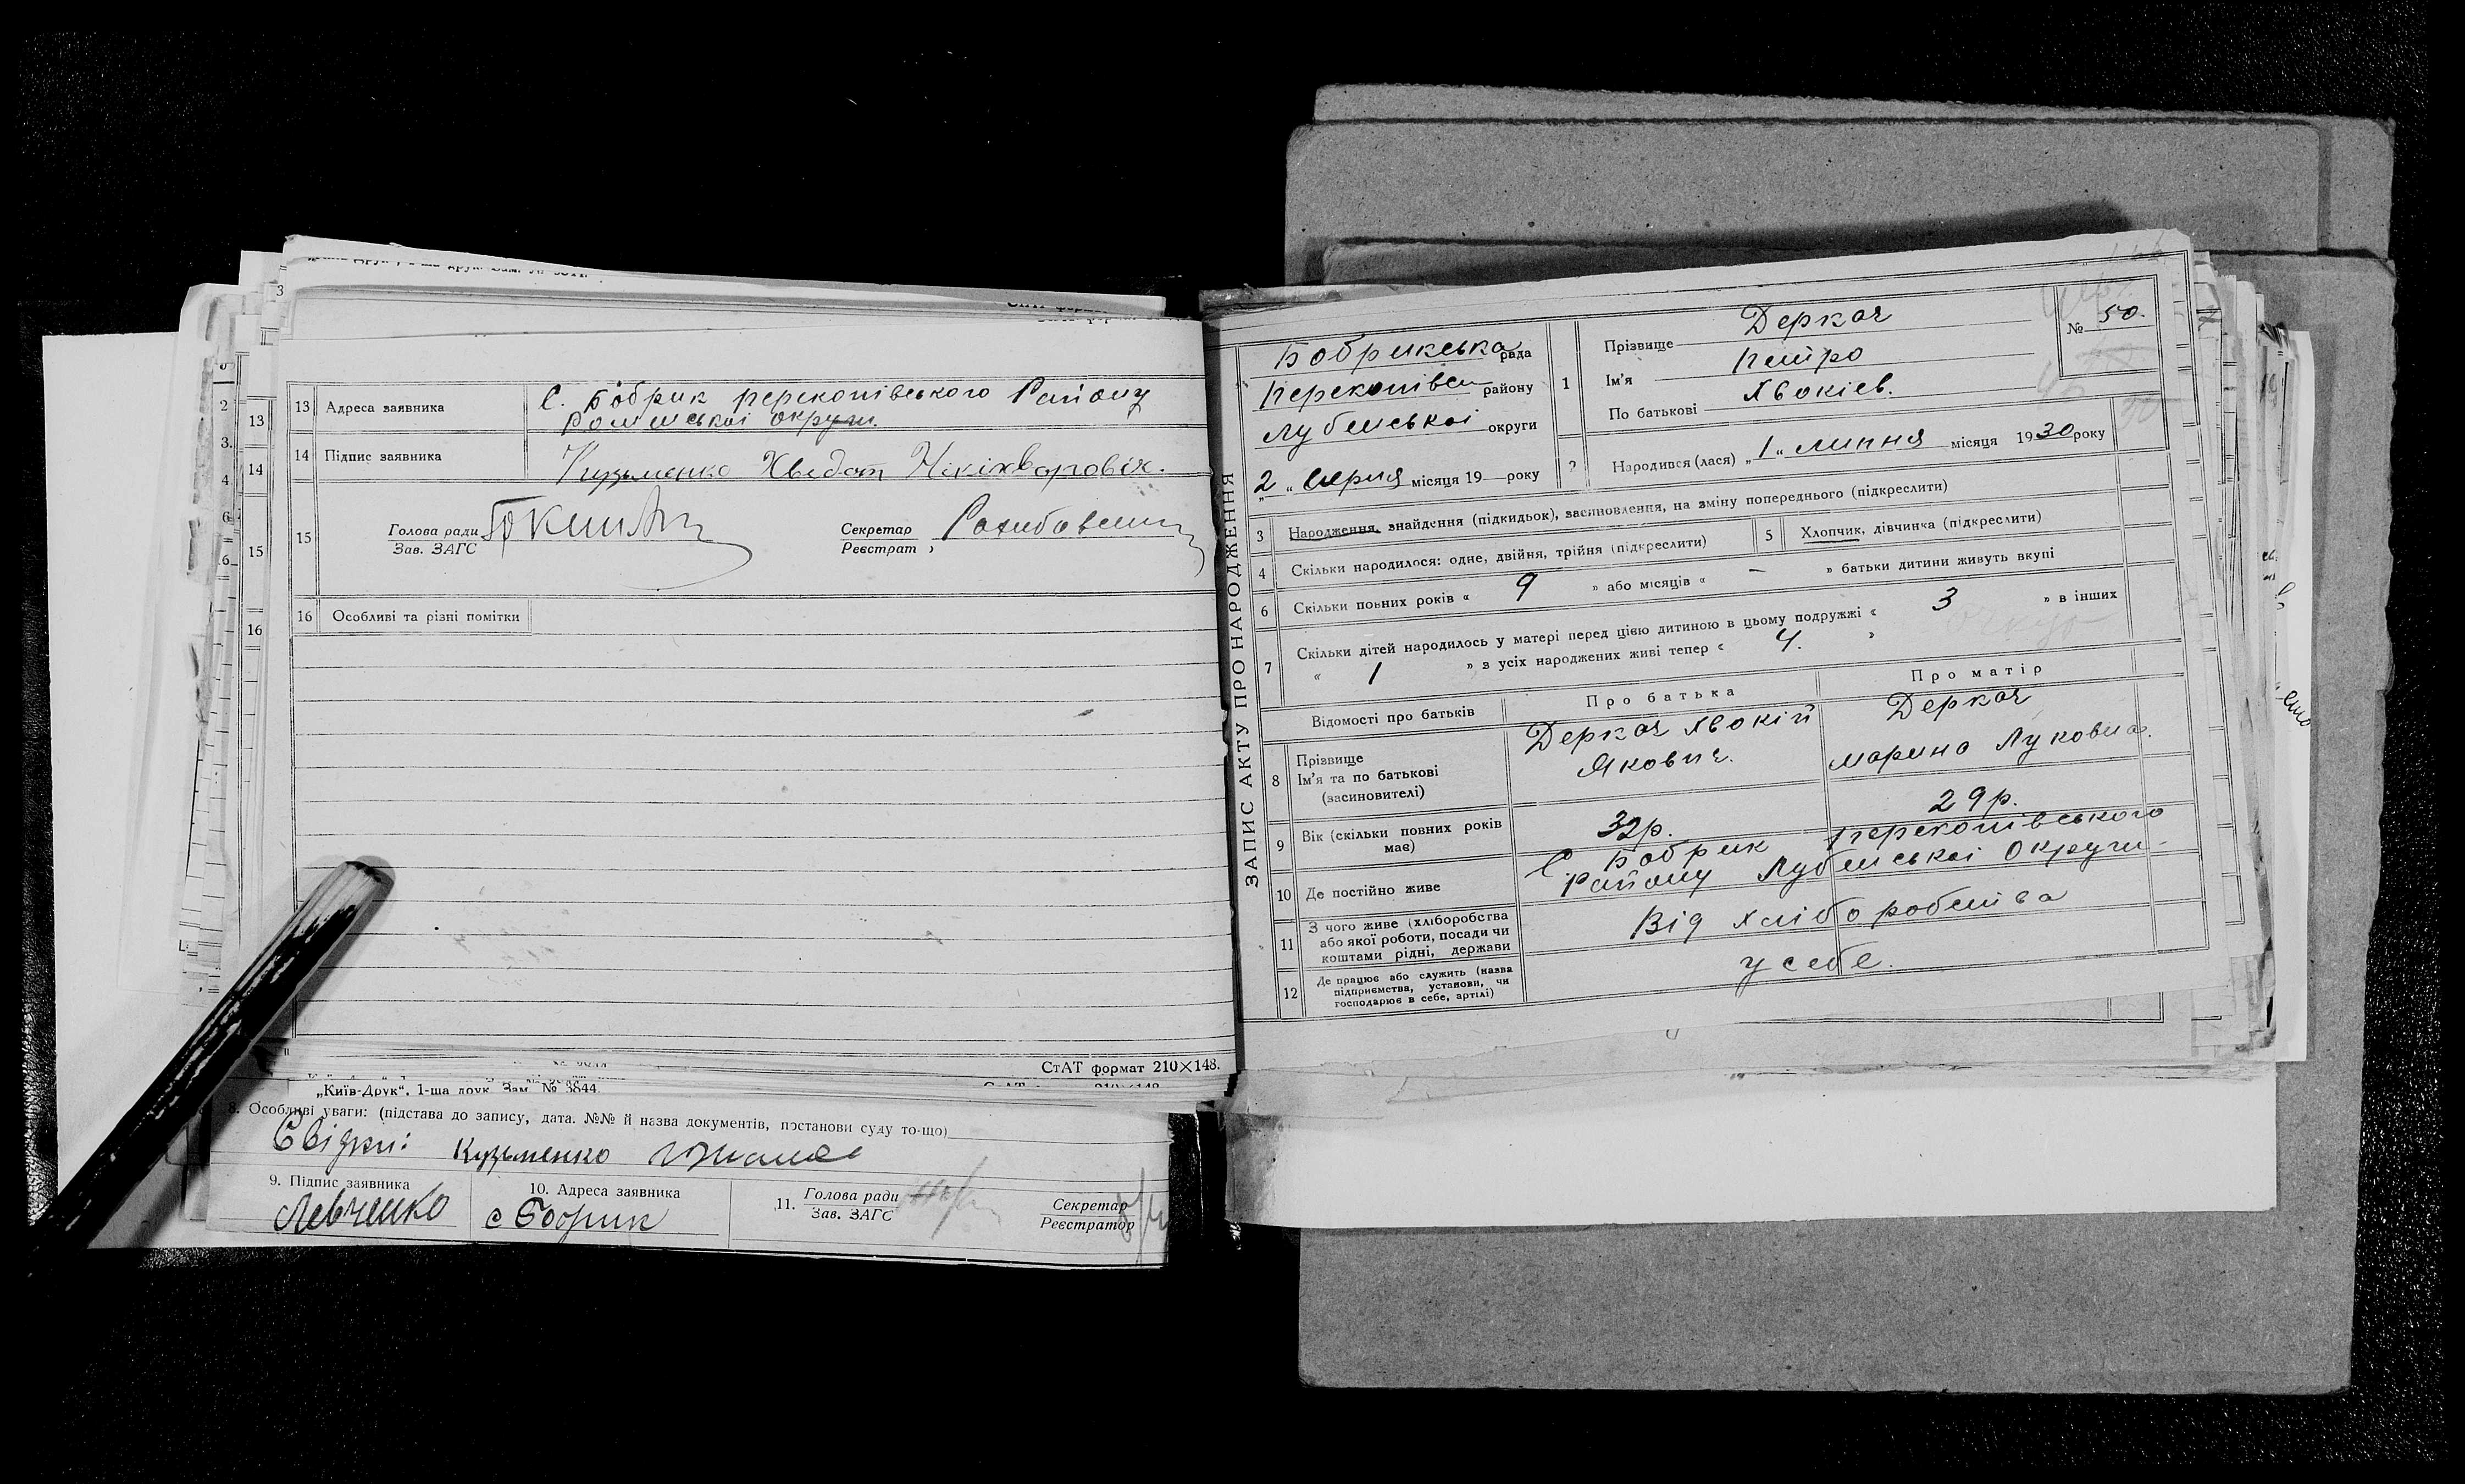 13 Адреса заявника С. Бобрик перекопівського Району
Роменської округи.
14 Підпис заявника Кузьменко Хведот Нікіхворовіч.
15 Голова ради
Зав. ЗАГС
Секретар
Реєстрат
16 Особливі та різні помітки
СтАТ формат 210×148.
„Київ-Друк“, 1-ша друк. Зам. № 3644.
8. Особливі уваги: (підстава до запису, дата. №№ й назва документів, постанови суду то-що)
Свідки: Кузьменко
9. Підпис заявника
Левченко
10. Адреса заявника
с Бобрик
11. Голова ради
Зав. ЗАГС
Секретар
Реєстратор
ЗАПИС АКТУ ПРО НАРОДЖЕННЯ
Бобрикська рада
Перекопівськ району
Лубенської округи
„2“ Серпня місяця 19 року
1 Прізвище Деркач
Ім'я Петро
По батькові Хвокіев.
№ 50.
2 Народився (лася) „1“ липня місяця 1930 року
3 Народження, знайдення (підкидьок), засиновлення, на зміну попереднього (підкреслити)
4 Скільки народилося: одне, двійня, трійня (підкреслити)
5 Хлопчик, дівчинка (підкреслити)
6 Скільки повних років « 9 » або місяців « – » батьки дитини живуть вкупі
7 Скільки дітей народилось у матері перед цією дитиною в цьому подружжі « 3 » в інших
« 1 » з усіх народжених живі тепер « 4. »
Відомості про батьків Про батька Про матір
8 Прізвище
Ім'я та по батькові
(засиновителі)
Деркач Хвокій
Якович.
Деркач
марина Луковна.
9 Вік (скільки повних років
має)
32р. 29р.
10 Де постійно живе
С. Бобрик перекопівського
Району Лубенської Округи
11 З чого живе (хліборобства
або якої роботи, посади чи
коштами рідні, держави
Від хліборобства
12 Де працює або служить (назва
підприємства, установи, чи
господарює в себе, артілі)
у себе.